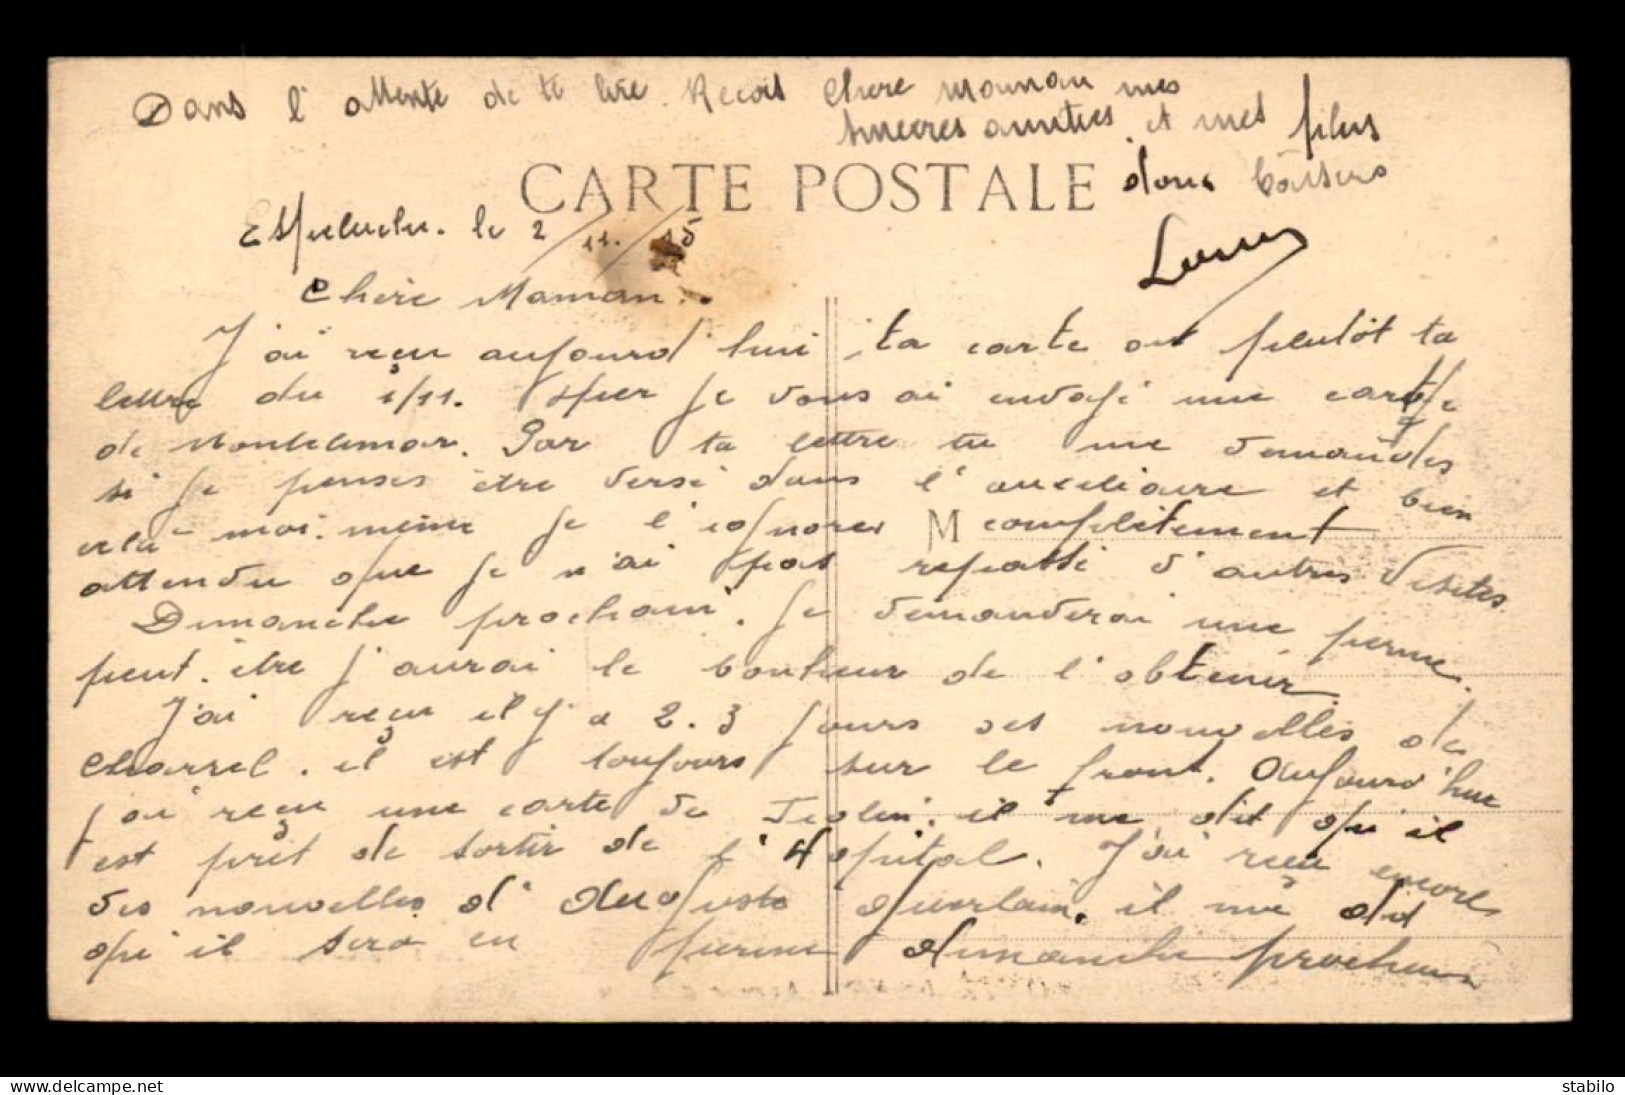 Dans l'attente de te lire. Recois Chere Maman mes
sinceres amities et mes plus
doux baisers
CARTE POSTALE
Espeluche. le 2/11./15
Chere Maman.
J'ai reçu aujourd'hui, ta carte ou plutôt ta
lettre du 1/11. Hier je vous ai envoyé une carte
de Montelimar. Par ta lettre tu me demandes
si je penses être versé dans l'auxiliaire et bien
cela moi-même je l'ignores M complètement
attendu que je n'ai pas repassé d'autres visites
Dimanche prochain. Je demanderai une perme
peut-être j'aurai le bonheur de l'obtenir.
J'ai reçu il y a 2.3 jours des nouvelles de
Charrel. il est toujours sur le front. Aujourd'hui
j'ai reçu une carte de il me dit qu'il
est prêt de sortir de l'Hopital. J'ai reçu encore
des nouvelles d'Auguste il me dit
qu'il sera en perme dimanche prochain
delcampe.net
stabilo